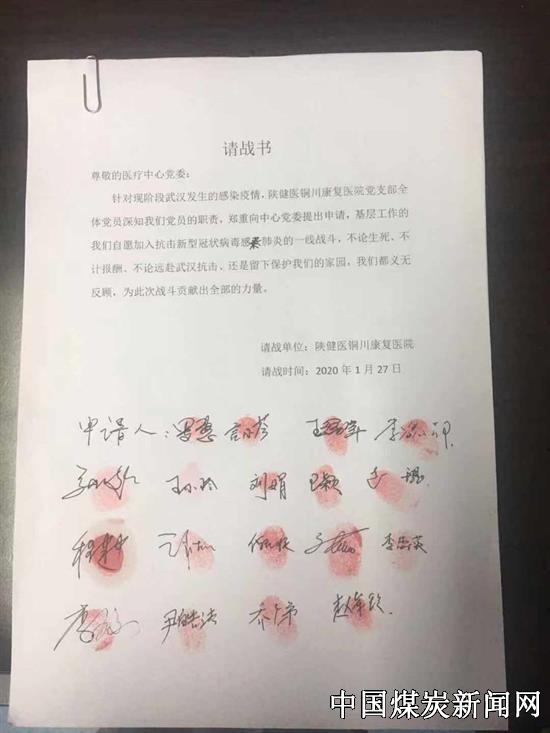 请战书
尊敬的医疗中心党委：
针对现阶段武汉发生的感染疫情，陕健医铜川康复医院党支部全
体党员深知我们党员的职责，郑重向中心党委提出申请，基层工作的
我们自愿加入抗击新型冠状病毒感染肺炎的一线战斗，不论生死、不
计报酬、不论远赴武汉抗击、还是留下保护我们的家园，我们都义无
反顾，为此次战斗贡献出全部的力量。
请战单位：陕健医铜川康复医院
请战时间：2020 年 1 月 27 日
申请人：
王小玲 刘娟
尹皓洁
中国煤炭新闻网